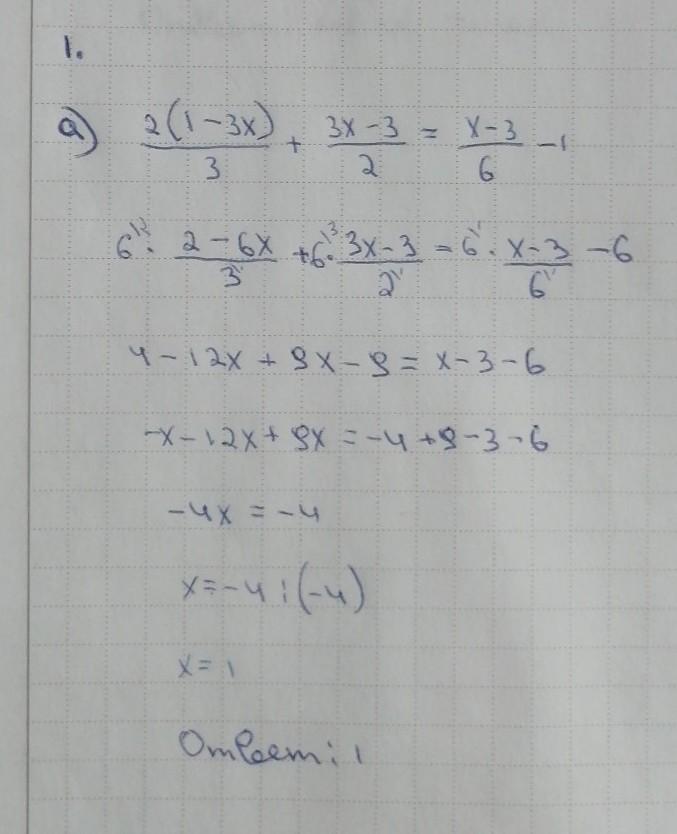 1.
а) 2(1-3x)/3 + 3x-3/2 = x-3/6 -1
6² · 2-6x/3¹ + 6³ · 3x-3/2¹ = 6¹ · x-3/6¹ -6
4-12x+9x-9=x-3-6
-x-12x+9x=-4+9-3-6
-4x=-4
x=-4:(-4)
x=1
Ответ: 1